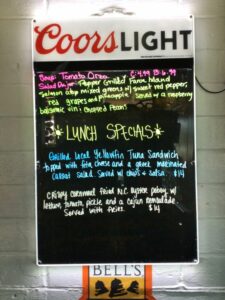 Coors LIGHT
Soup: Tomato Orzo C 4.99 B 6.99
Salad Du Jour: Pepper Grilled Faroe Island
Salmon atop mixed greens w/ sweet red pepper,
red grapes and pineapple. Served w/ a raspberry
balsamic vin. & roasted Pecans
LUNCH SPECIALS
Grilled Local Yellowfin Tuna Sandwich
topped with feta cheese and a greek marinated
salad. Served w/ chips & salsa $14
Crispy cornmeal fried N.C. oyster po'boy w/
lettuce, tomato, pickle and a cajun remoulade.
Served with fries. $14
BELL'S